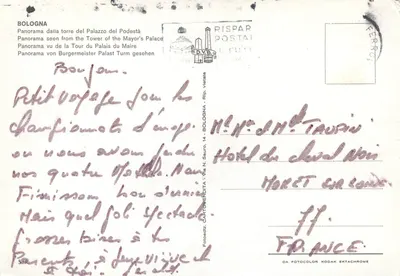 BOLOGNA
Panorama dalla torre del Palazzo del Podestà
Panorama seen from the Tower of the Mayor's Palace
Panorama vu de la Tour du Palais du Maire
Panorama von Burgermeister Palast Turm gesehen
RISPAR
POSTAL
Bonjour.
Petit voyage pour les
championnats d'
ou nous avons perdu
nos quatre Matchs. Nous
Finissons bon dernier
Mais quel joli spectacle
grosses bises à tes
Parents, à
à toi.
Mr Me
Hotel du cheval Noir
MORET SUR LOING
77.
FRANCE.
BOLOGNA - Rip. vietata
DA FOTOCOLOR KODAK EKTACHROME